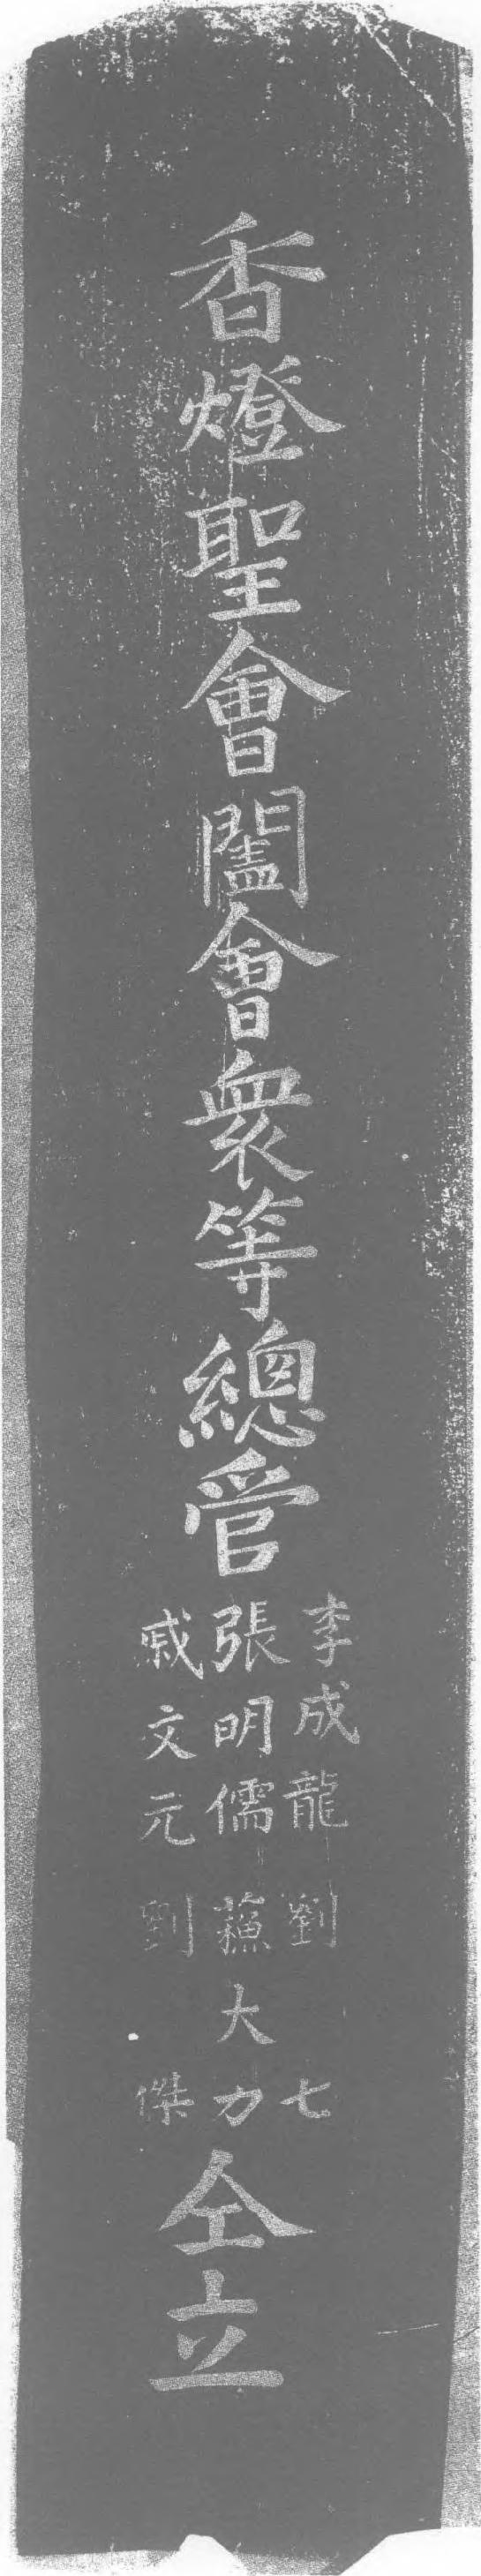 香燈聖會闔會衆等總管
李成龍
張明儒
戚文元
劉七
蘓大力
劉傑
仝立